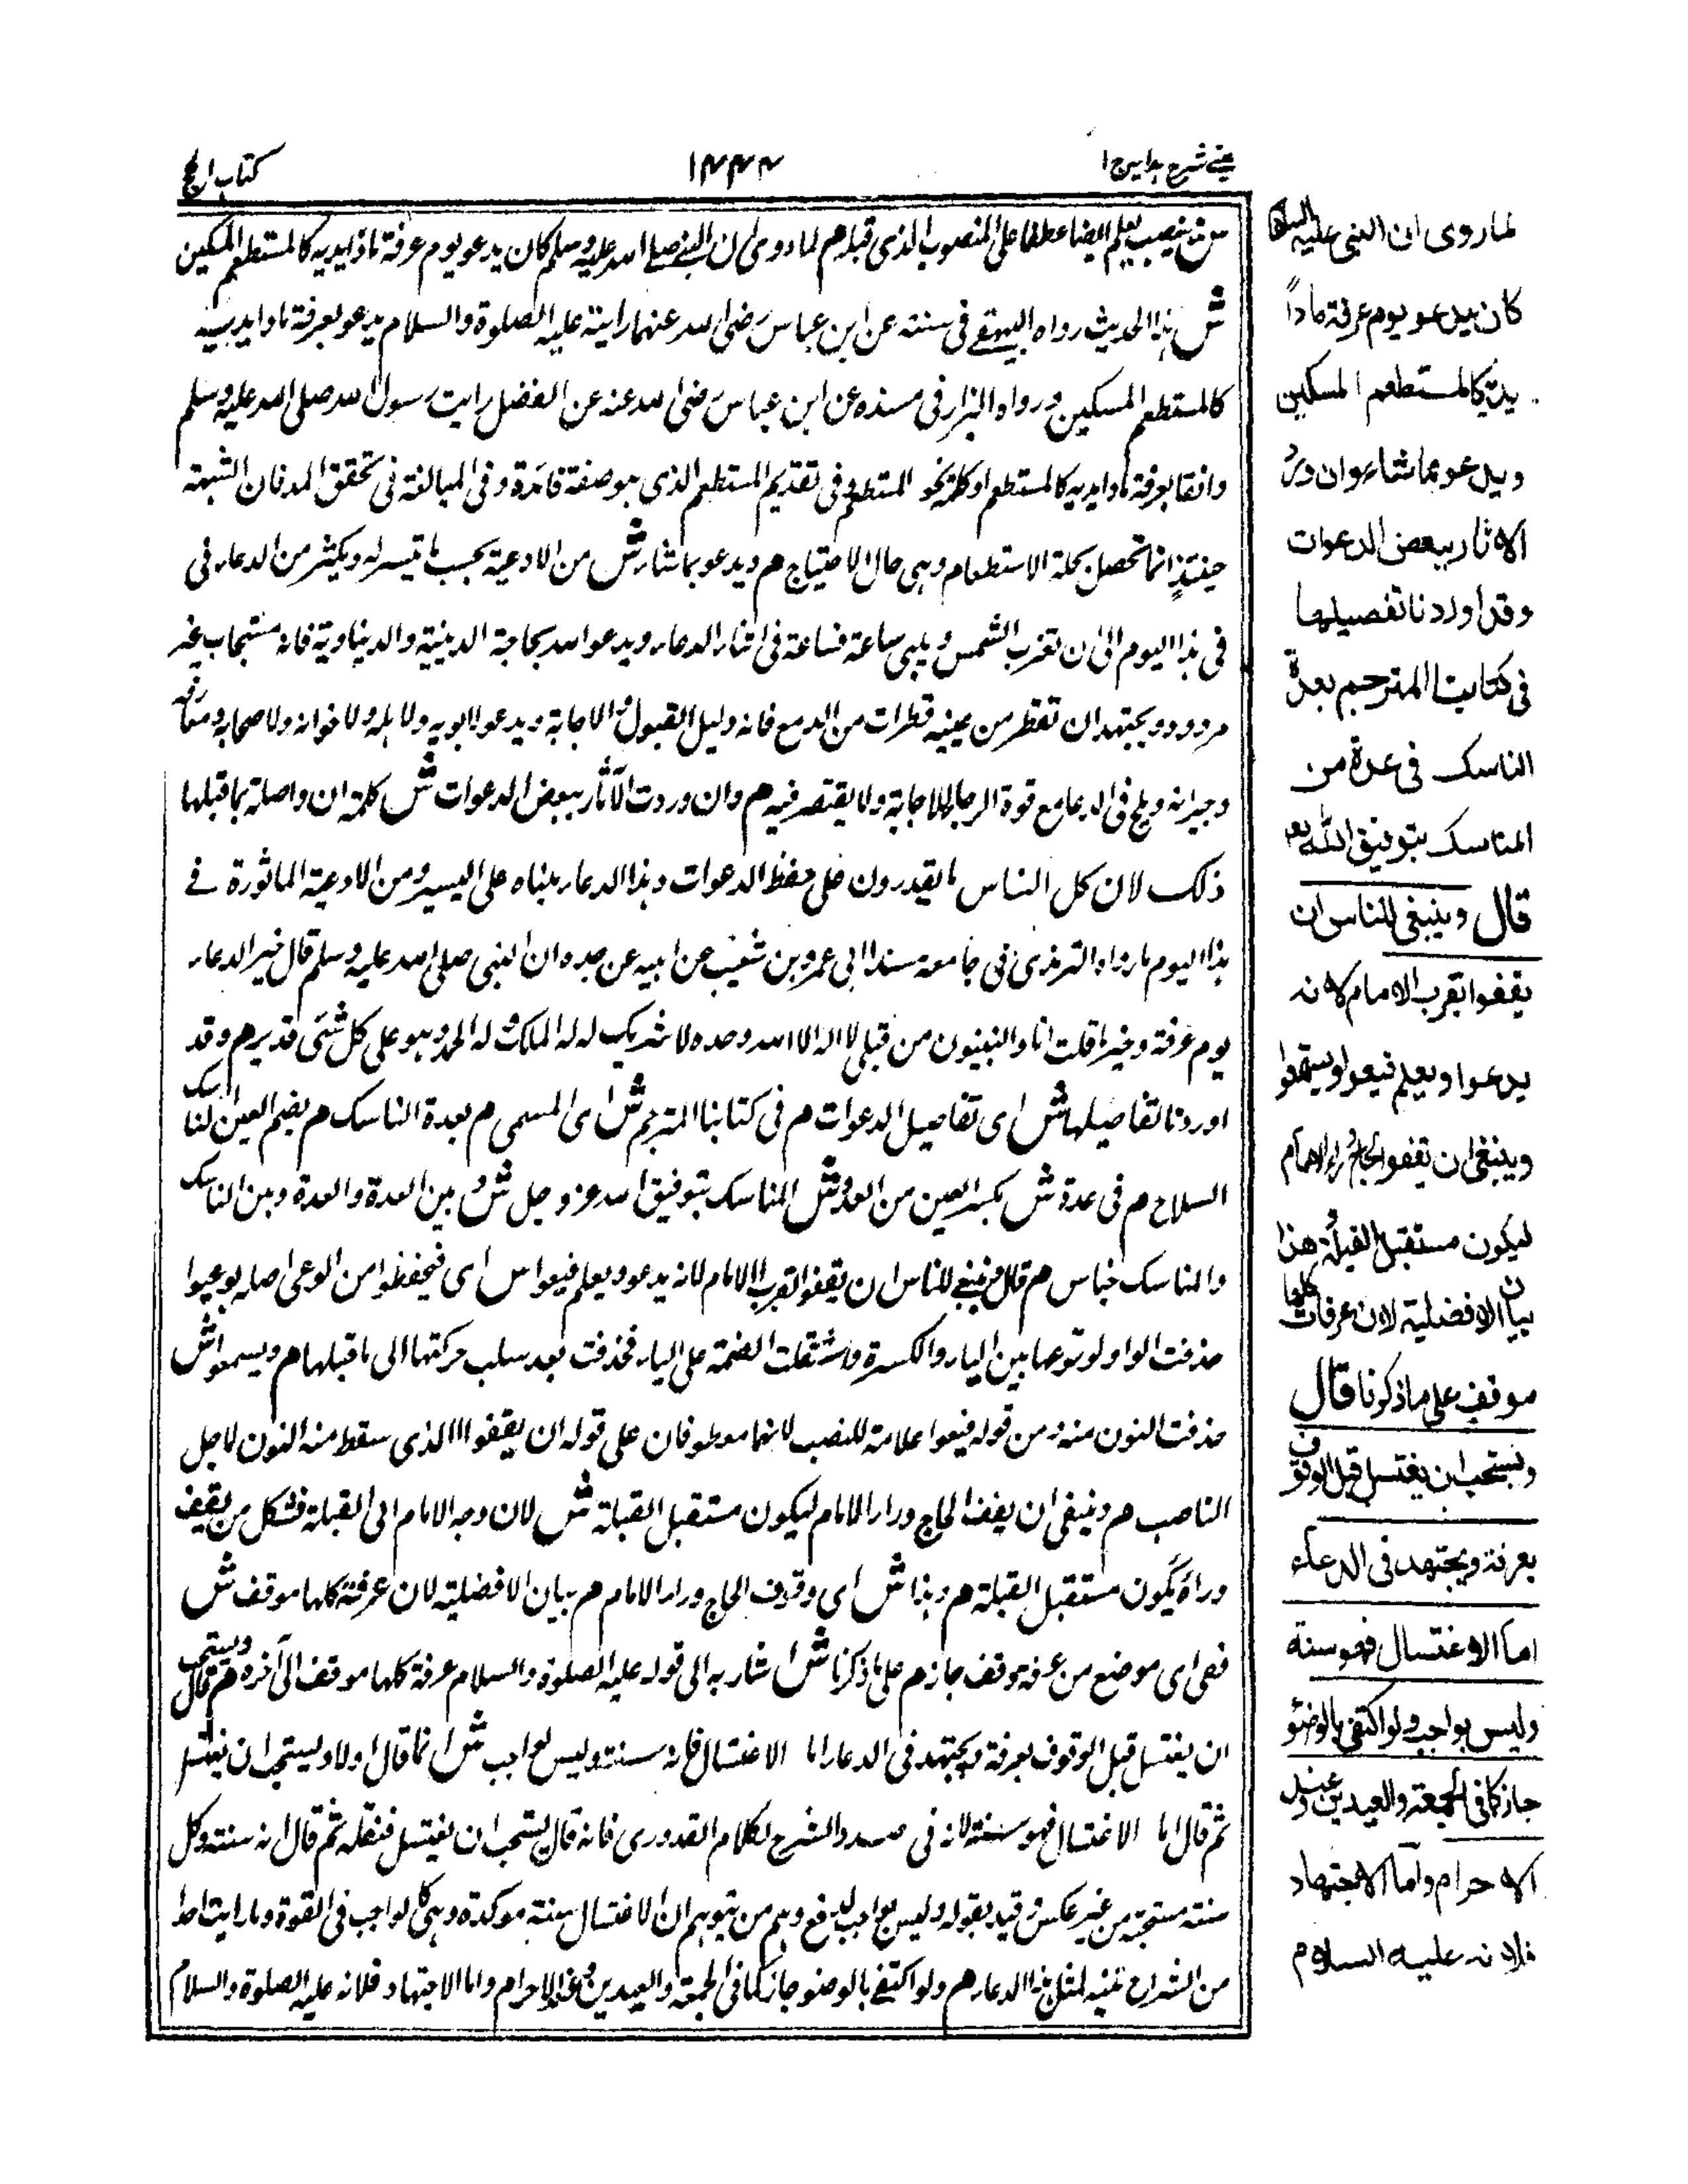 عینی شرح ہدایہ ج ١
١٣٤٤
كتاب الحج
ش بنصب يعلم ايضا عطفا على المنصوب الذى قبله م لما روى ان النبى صلى الله عليه وسلم كان يدعو يوم عرفة مادا يديه كالمستطعم المسكين
ش هذا الحديث رواه البيهقى فى سننه عن ابن عباس رضى الله عنهما رايته عليه الصلوة والسلام يدعو بعرفة مادا يديه
كالمستطعم المسكين ورواه البزار فى مسنده عن ابن عباس رضى الله عنه عن الفضل رايت رسول الله صلى الله عليه وسلم
واقفا بعرفة مادا يديه كالمستطعم او كلمة نحو المستطعم وفى تقديم المستطعم الذى هو صفة فائدة وفى المبالغة فى تحقق المد فان الشبهة
حينئذ انما تحصل بحلة الاستطعام وهى حال الاحتياج م ويدعو بما شاء ش من الادعية بحسب ما تيسر له ويكثر من الدعاء فى
فى هذا اليوم الى ان تغرب الشمس ويلبى ساعة فساعة فى اثناء الدعاء ويدعو الله بحاجة الدينية والديناوية فانه مستجاب غير
مردود ويجتهد ان تقطر من عينيه قطرات من الدمع فانه دليل القبول والاجابة ويدعو لابويه ولاهله ولاخوانه ولاصحابه ومعارفه
وجيرانه ويلح فى الدعا مع قوة الرجا للاجابة ولا يقتصر فيه م وان وردت الآثار ببعض الدعوات ش كلمة ان واصلة بما قبلها
ذلك لان كل الناس ما يقدرون على حفظ الدعوات وهذا الدعاء بناه على اليسير ومن الادعية الماثورة فى
هذا اليوم ما رواه الترمذى فى جامعه مسندا الى عمرو بن شعيب عن ابيه عن جده ان النبى صلى الله عليه وسلم قال خير الدعاء
يوم عرفة وخير ما قلت انا والنبيون من قبلى لا اله الا الله وحده لا شريك له له الملك وله الحمد وهو على كل شئ قدير م وقد
اوردنا تفاصيلها ش اى تفاصيل الدعوات م فى كتابنا المترجم ش اى المسمى م بعدة الناسك م بضم العين الناسك
السلاح م فى عدة ش بكسر العين من العد ش المناسك بتوفيق الله عز وجل ش بين العدة والعدة وبين الناسك
والمناسك جناس م قال وينبغى للناس ان يقفوا بقرب الامام لانه يدعو ويعلم فيعوا س اى فيحفظوا من الوعى اصله يوعيوا
حذفت الواو لوقوعها بين الياء والكسرة واستثقلت الضمة على الياء فحذفت بعد سلب حركتها الى ما قبلها م ويسمعوا ش
حذفت النون منه ومن قوله فيعوا علامة للنصب لانهما معطوفان على قوله ان يقفوا الذى سقط منه النون لاجل
الناصب م وينبغى ان يقف الحاج وراء الامام ليكون مستقبل القبلة ش لان وجه الامام الى القبلة فشكل من يقيف
وراءه يكون مستقبل القبلة م وهذا ش اى وقوف الحاج وراء الامام م بيان الافضلية لان عرفة كلها موقف ش
ففى اى موضع من عرفة وقف جاز م على ما ذكرنا ش اشار به الى قوله عليه الصلوة والسلام عرفة كلها موقف الى آخره م قال ويستحب
ان يغتسل قبل الوقوف بعرفة ويجتهد فى الدعاء اما الاغتسال فانه سنة وليس بواجب ش انما قال اولا ويستحب ان يغتسل
ثم قال اما الاغتسال فهو سنة لانه فى صدد الشرح لكلام القدورى فانه قال يستحب ان يغتسل فنقله ثم قال انه سنة وكل
سنة مستحبة من غير عكس وقيد بقوله وليس بواجب لدفع وهم من يتوهم ان الاغتسال سنة موكدة وهى كالواجب فى القوة وما رايت احدا
من الشراح تنبه لمثل هذا الدعاء م ولو اكتفى بالوضو جاز كما فى الجمعة والعيدين وعند الاحرام واما الاجتهاد فلانه عليه الصلوة والسلام
لما روى ان النبى عليه السلام
كان يدعو يوم عرفة ماداً
يديه كالمستطعم المسكين
ويدعو بما شاء وان ورد
الاثار ببعض الدعوات
وقد اوردنا تفصيلها
فى كتابنا المترجم بعدة
الناسك فى عدة من
المناسك بتوفيق الله تعالى
قال وينبغى للناس ان
يقفوا بقرب الامام لانه
يدعوا ويعلم فيعوا ويسمعوا
وينبغى ان يقفوا الحاج وراء الامام
ليكون مستقبل القبلة وهذا
بيان الافضلية لان عرفات كلها
موقف على ما ذكرنا قال
ويستحب ان يغتسل قبل الوقوف
بعرفة ويجتهد فى الدعاء
اما الاغتسال فهو سنة
وليس بواجب ولو اكتفى بالوضو
جاز كما فى الجمعة والعيدين وعند
الاحرام واما الاجتهاد
فلانه عليه السلام